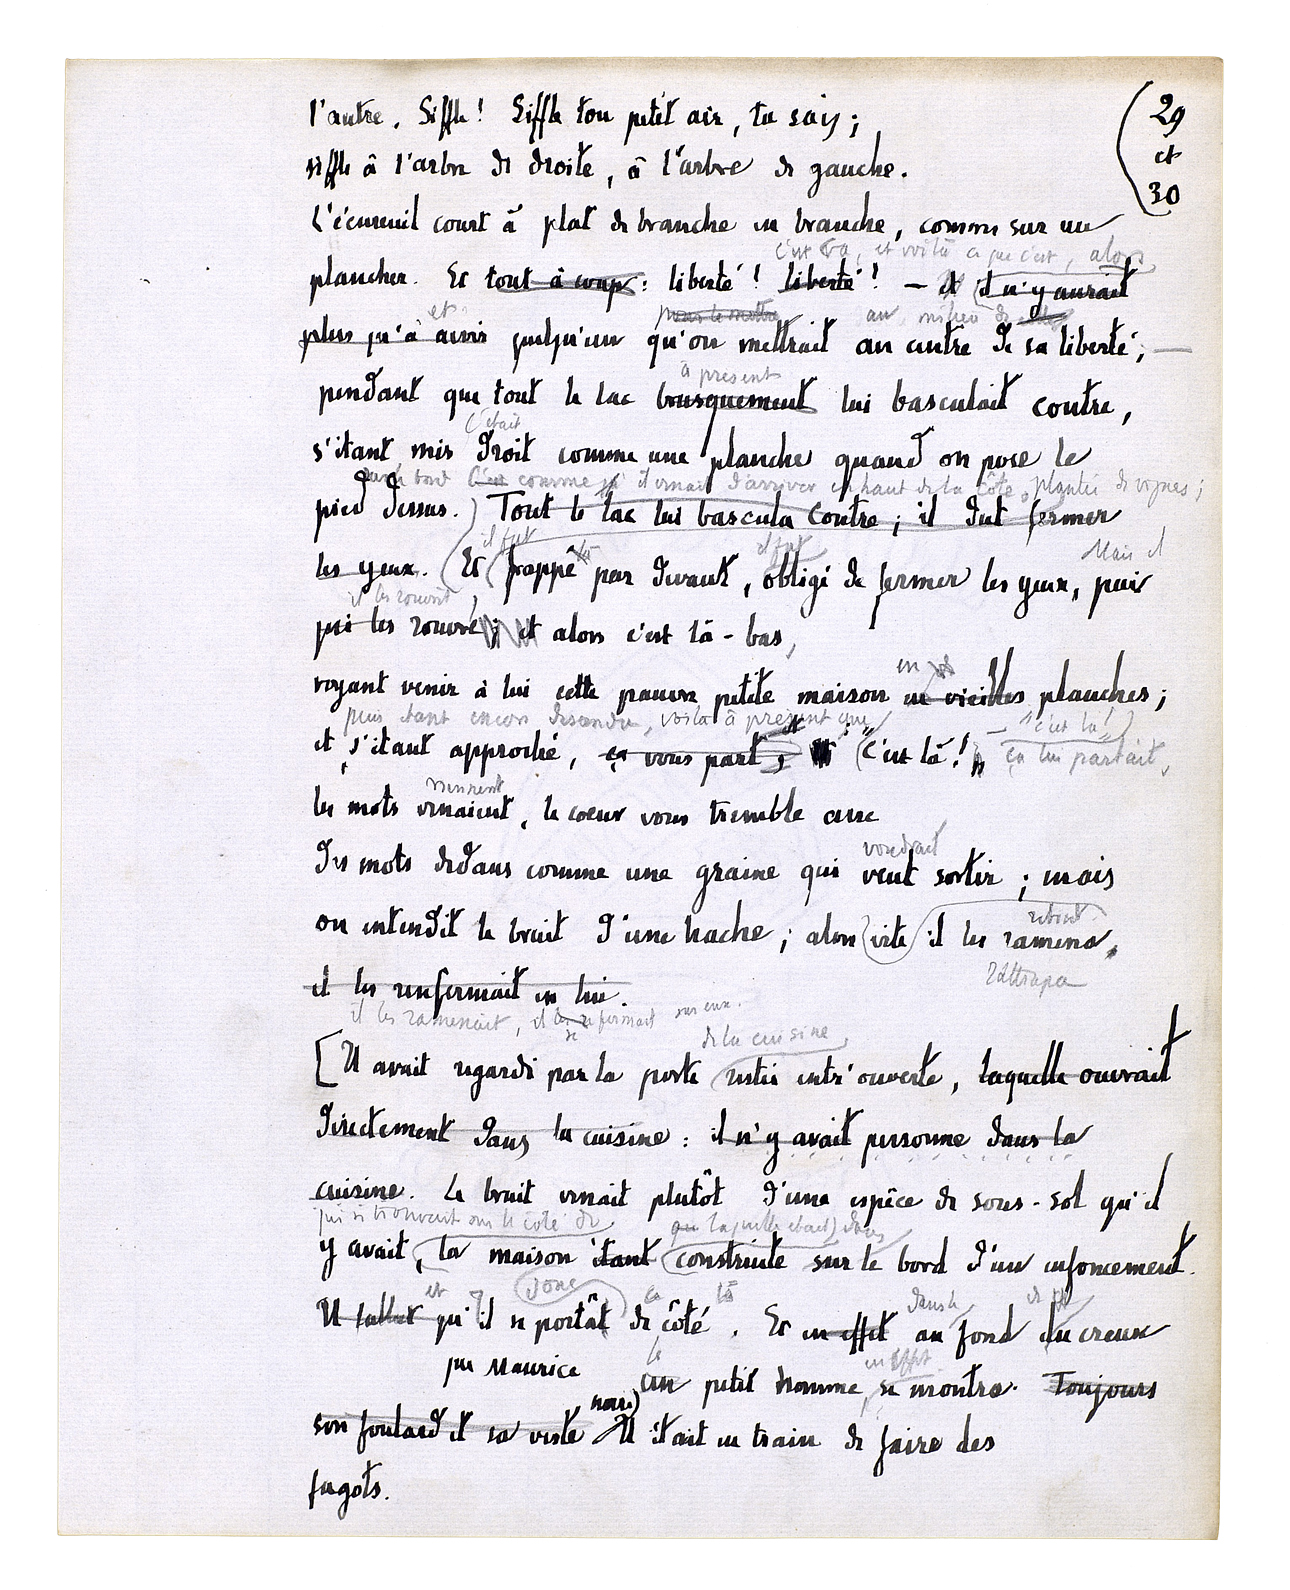 (29
et
30
l'autre. Siffle! Siffle ton petit air, tu sais;
siffle à l'arbre de droite, à l'arbre de gauche.
L'écureuil court à plat de branche en branche, comme sur un
c'est ça, et voilà ce que c'est, alors
plancher. Et tout à coup: liberté! liberté! — et il n'y aurait
et pour le mettre au milieu de
plus qu'à avoir quelqu'un qu'on mettrait au centre de sa liberté; —
à présent
pendant que tout le lac brusquement lui basculait contre,
c'était
s'étant mis droit comme une planche quand on pose le
bord C'est comme il venait d'arriver en haut de la côte plantée de vignes;
pied dessus.) Tout le lac lui bascula contre; il dut fermer
il fut il fut Mais il
les yeux. (Et frappé par devant, obligé de fermer les yeux, puis
il les rouvrit
puis les rouvre; et alors c'est là-bas,
en
voyant venir à lui cette pauvre petite maison en vieilles planches;
puis étant encore descendu, voilà à présent que
et — "c'est là!"
et, s'étant approché, ça vous part, "C'est là!" ça lui partait,
vinrent
les mots venaient, le coeur vous tremble avec
voudrait
des mots dedans comme une graine qui veut sortir; mais
retint
on entendit le bruit d'une hache; alors vite il les ramena,
rattrapa
il les renfermait en lui.
il les ramenait, il les se refermait sur eux.
de la cuisine
[Il avait regardé par la porte restée entr'ouverte, laquelle ouvrait
directement dans la cuisine: il n'y avait personne dans la
cuisine. Le bruit venait plutôt d'une espèce de sous-sol qu'il
qui se trouvait sur le côté de laquelle était dans
y avait, la maison étant construite sur le bord d'un enfoncement.
et donc ça là dans le de
Il fallut qu'il se portât de côté. Et en effet au fond du creux
le en effet
que Maurice un petit homme se montra. Toujours
noué)
son foulard et sa veste Il était en train de faire des
fagots.